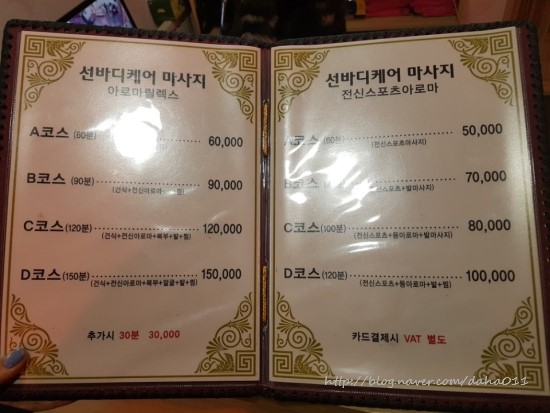 선바디케어 마사지
아로마릴렉스
A코스 (60분) 60,000
B코스 (90분) 90,000
(건식+전신아로마+발+찜)
C코스 (120분) 120,000
(건식+전신아로마+복부+발+찜)
D코스 (150분) 150,000
(건식+전신아로마+복부+얼굴+발+찜)
추가시 30분 30,000
선바디케어 마사지
전신스포츠아로마
A코스 (60분) 50,000
(전신스포츠마사지)
B코스 70,000
(전신스포츠+발마사지)
C코스 (100분) 80,000
(전신스포츠+등아로마+발마사지)
D코스 (120분) 100,000
(전신스포츠+등아로마+발+찜)
카드결제시 VAT 별도
http://blog.naver.com/daha011